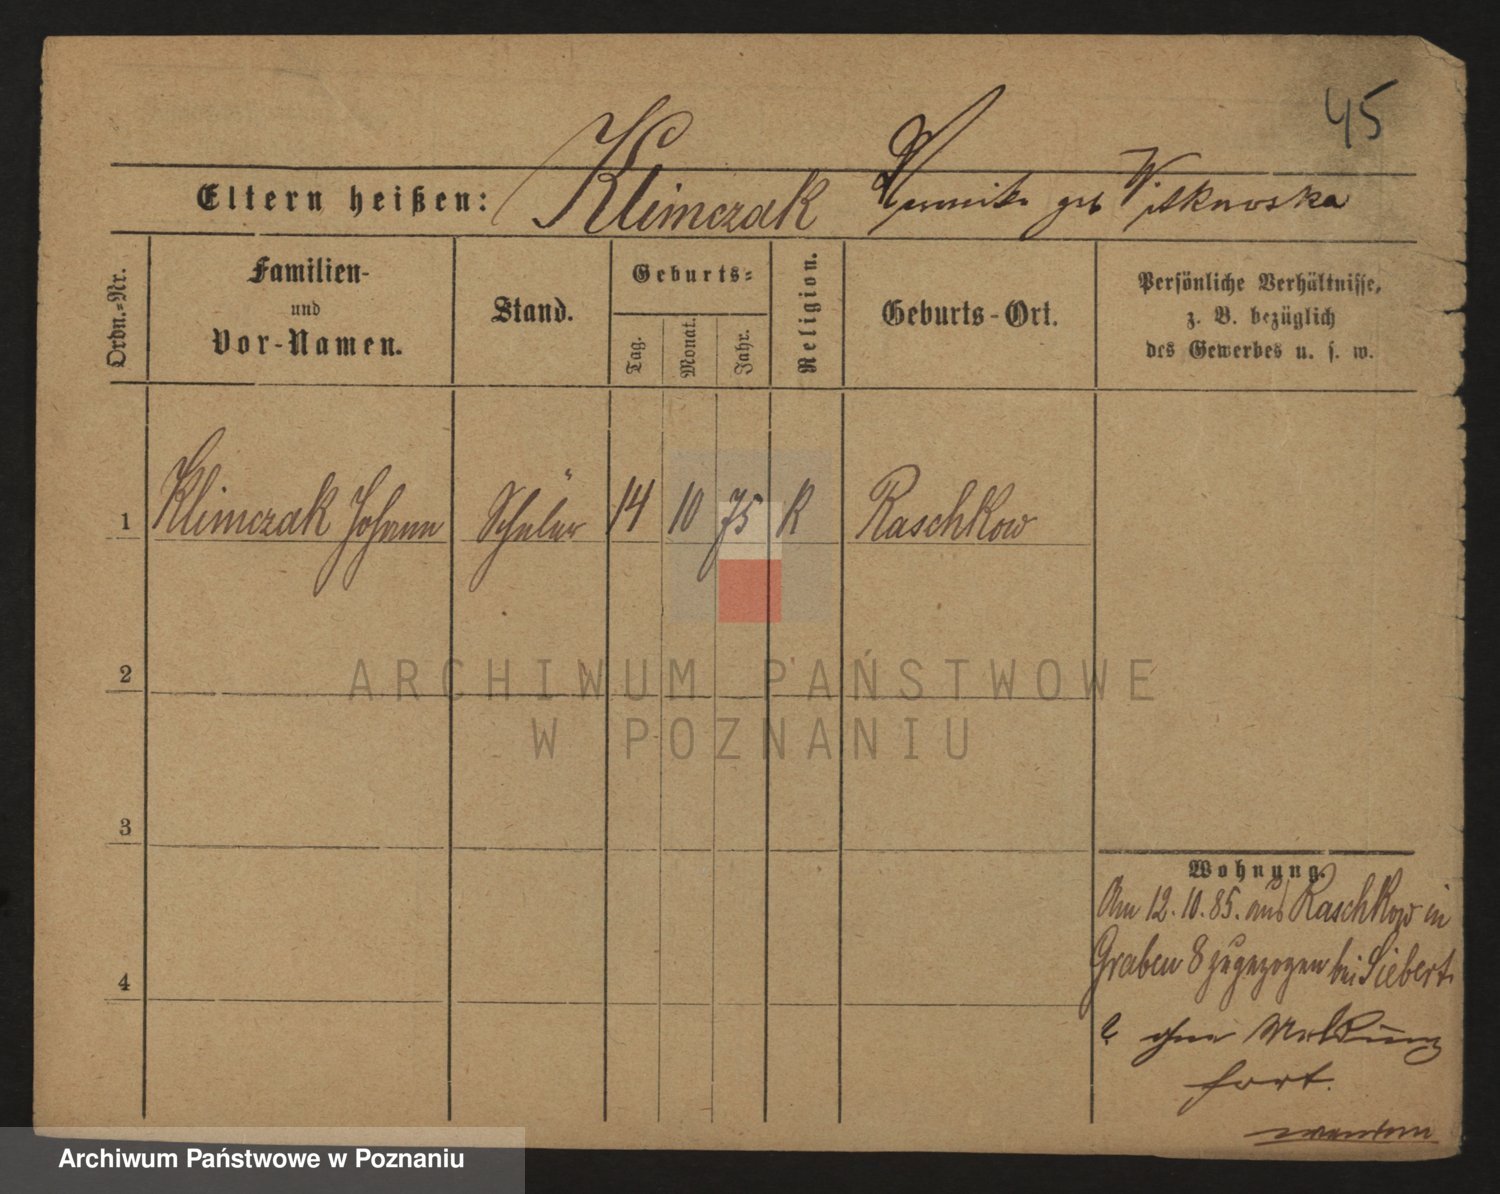 45
Eltern heißen: Klimczak geb Witkowska
Ordn.-Nr.
Familien-
und
Vor-Namen.
Stand.
Geburts-
Tag.
Monat.
Jahr.
Religion.
Geburts-Ort.
Persönliche Verhältnisse,
z. B. bezüglich
des Gewerbes u. s. w.
1 Klimczak Johann Schüler 14 10 75 K Raschkow
2
3
4
Wohnung.
Am 12.10.85. aus Raschkow in
Graben 8 zugezogen bei Siebert.
ohne Meldung
fort.
ARCHIWUM PAŃSTWOWE
W POZNANIU
Archiwum Państwowe w Poznaniu